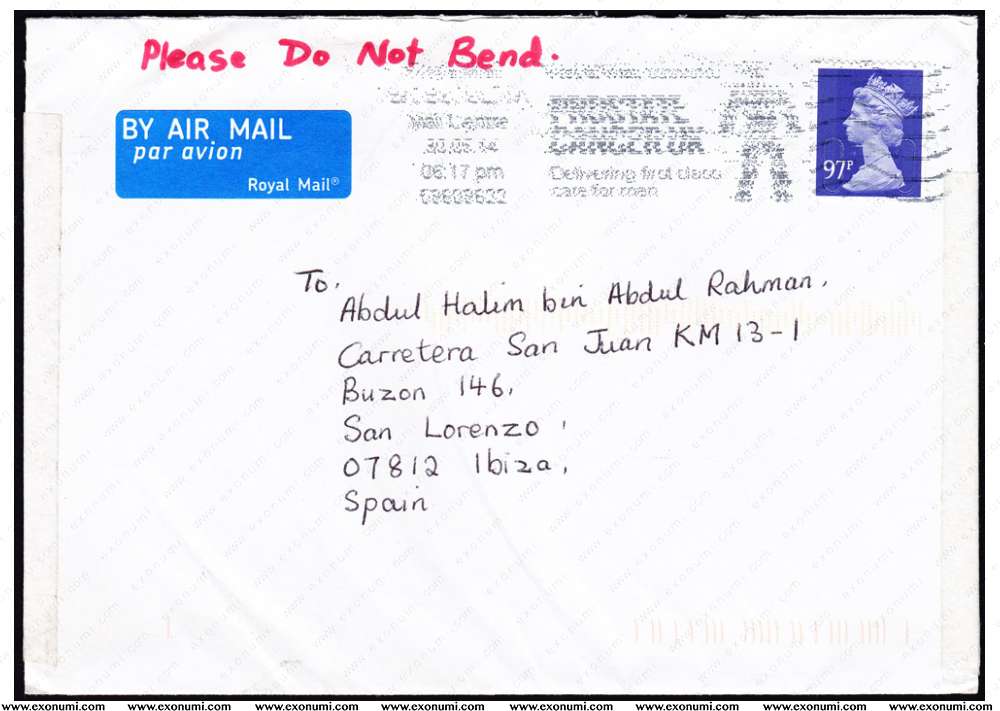 Please Do Not Bend.
BY AIR MAIL
par avion
Royal Mail®
Mail Centre
30.05.14
06:17 pm
PROSTATE
CANCER UK
Delivering first class
care for men
97P
To,
Abdul Halim bin Abdul Rahman,
Carretera San Juan KM 13-1
Buzon 146,
San Lorenzo,
07812 Ibiza,
Spain
www.exonumi.com www.exonumi.com www.exonumi.com www.exonumi.com www.exonumi.com www.exonumi.com www.exonumi.com www.exonumi.com